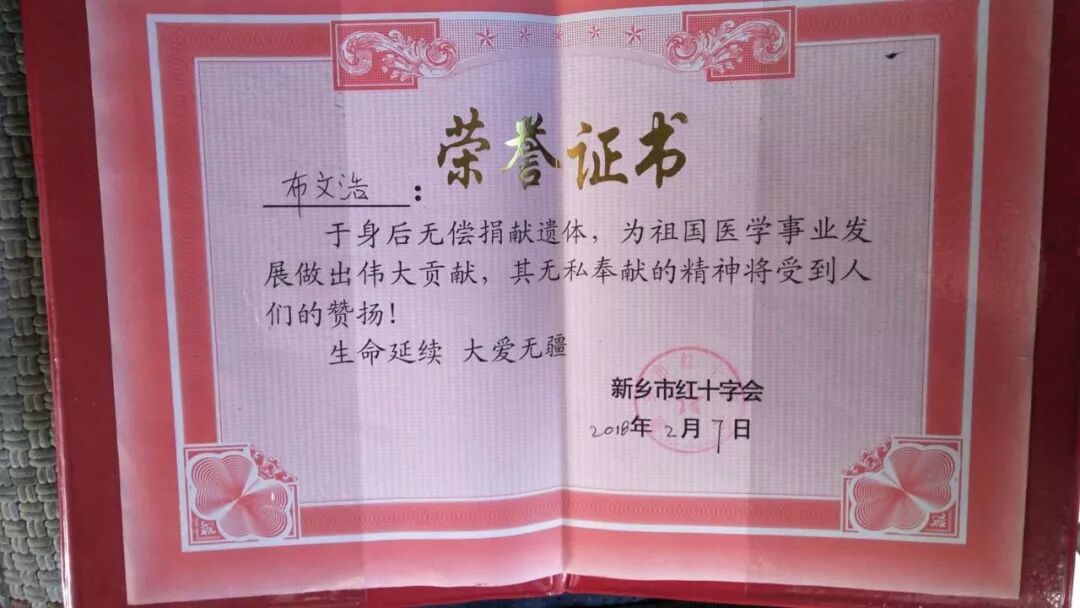 荣誉证书
布文浩：
于身后无偿捐献遗体，为祖国医学事业发
展做出伟大贡献，其无私奉献的精神将受到人
们的赞扬！
生命延续 大爱无疆
新乡市红十字会
2018年2月7日